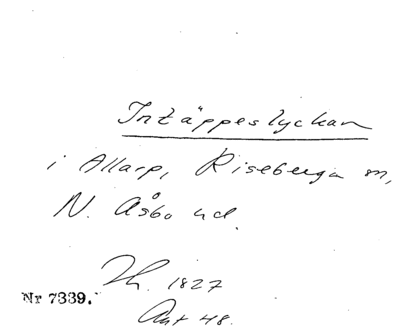 Intäppeslyckan
i Allarp, Riseberga sn,
N. Åsbo hd.
Th. 1827
Nr 7339.
Ant 48.